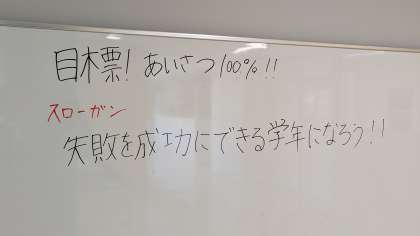 目標! あいさつ100%!!
スローガン
失敗を成功にできる学年になろう!!